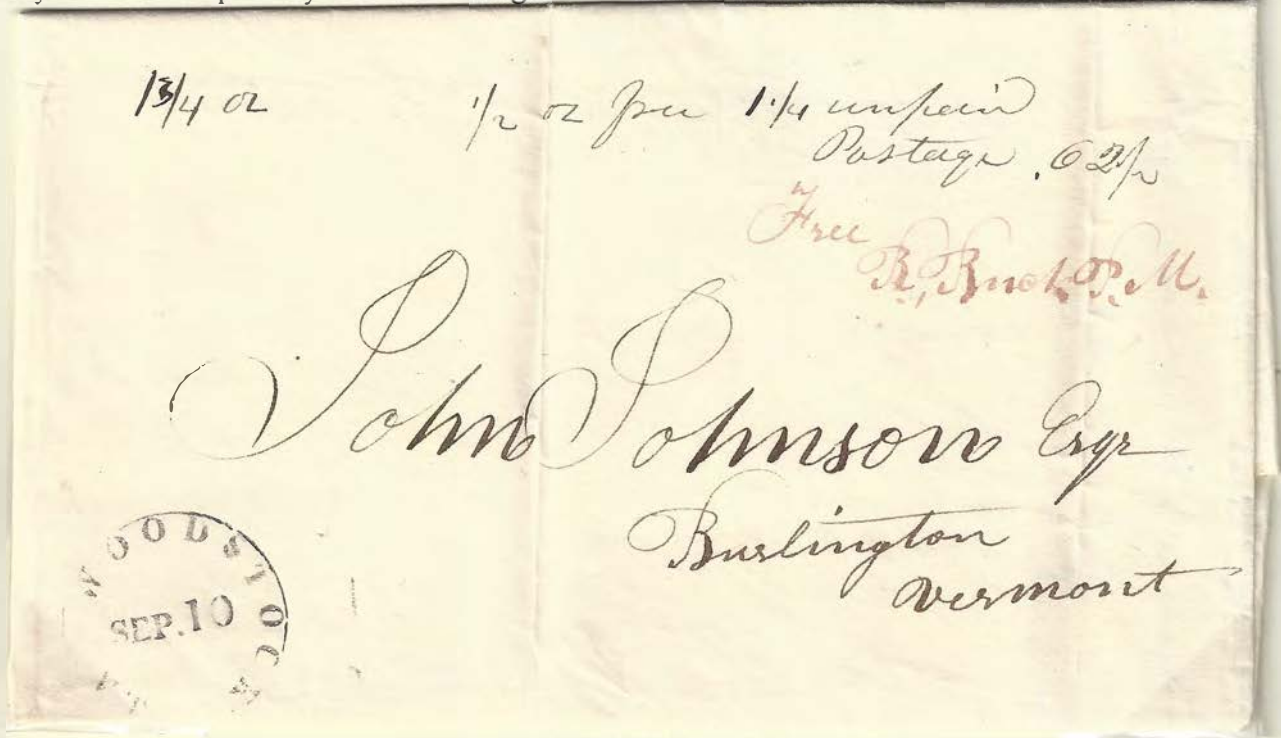 1 3/4 oz 1/2 oz free 1 1/4 unpaid
Postage .62 1/2
Free
R. Buck P.M.
John Johnson Esqr
Burlington
Vermont
WOODSTOCK
SEP. 10